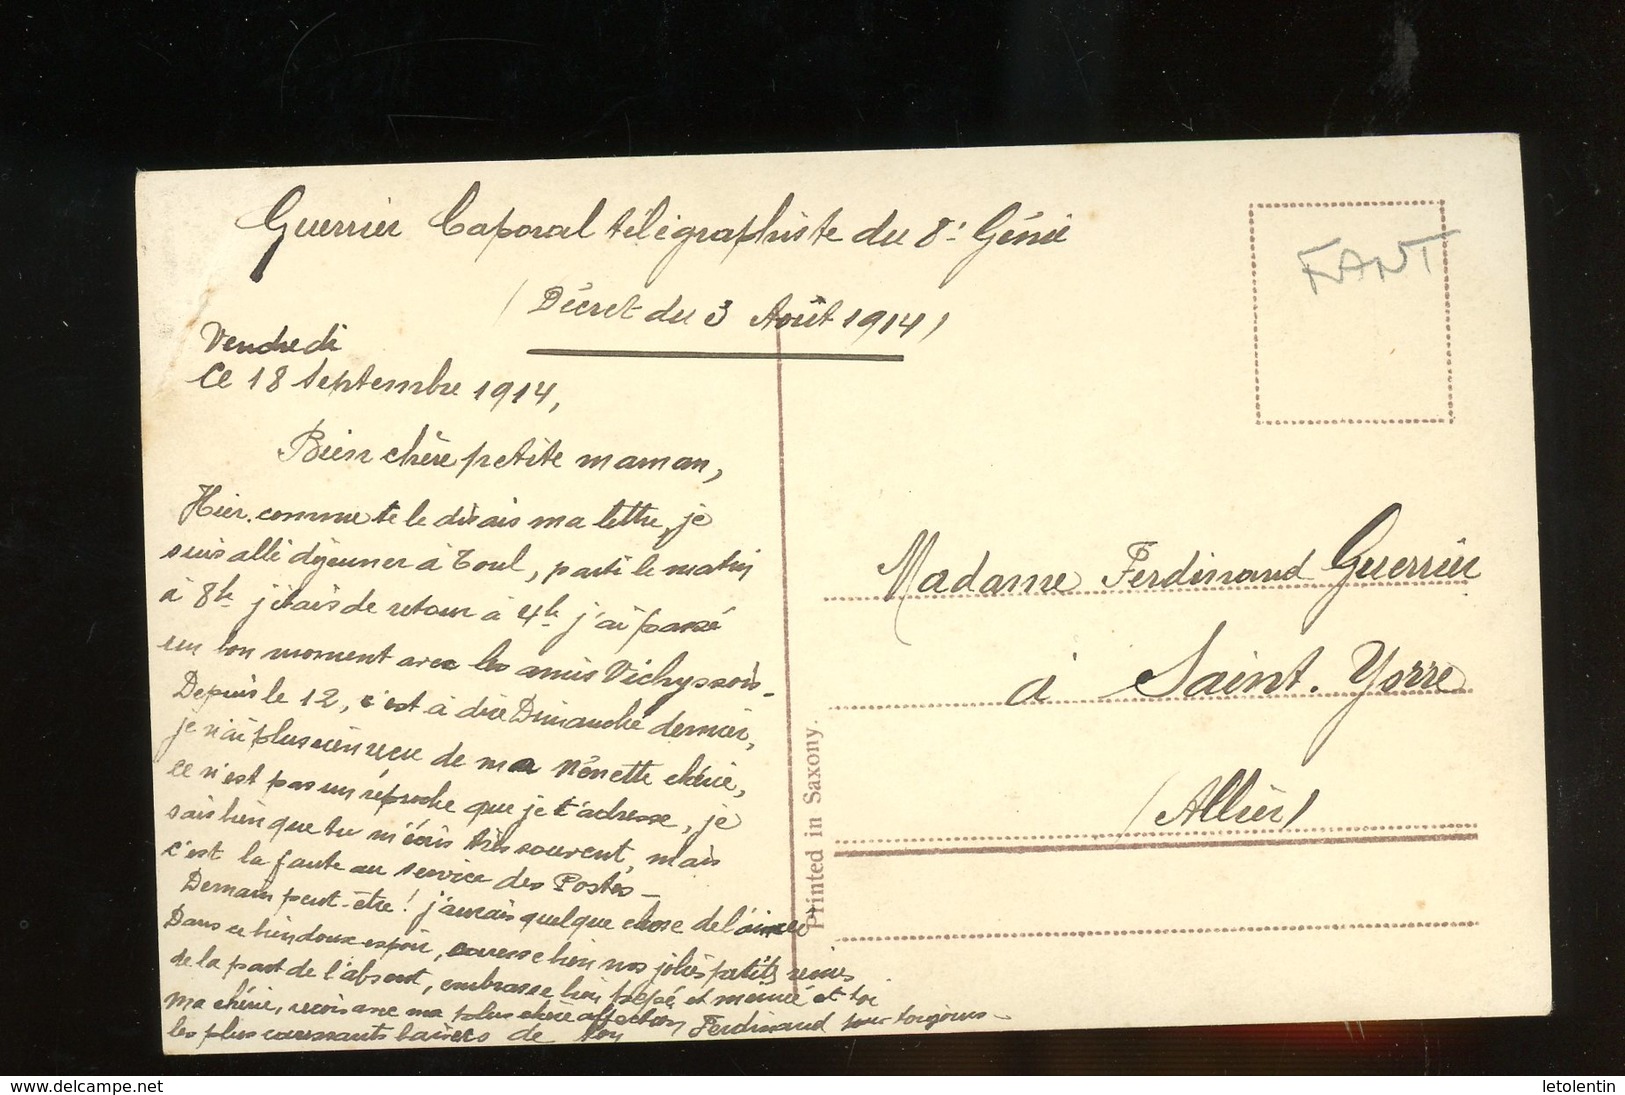 Guerrier Caporal télégraphiste du 8e Génie
(Décret du 3 Août 1914)
FRANT
Vendredi
Ce 18 Septembre 1914,
Bien chère petite maman,
Hier, comme te le disais ma lettre, je
suis allé déjeuner à Toul, parti le matin
à 8h j'étais de retour à 4h j'ai passé
un bon moment avec les amis Vichyssois.
Depuis le 12, c'est à dire Dimanche dernier,
je n'ai plus rien reçu de ma Nénette chérie,
ce n'est pas un réproche que je t'adresse, je
sais bien que tu m'écris très souvent, mais
c'est la faute au service des Postes—
Demain peut-être! j'aurais quelque chose de l'aimée
Dans ce bien doux espoir, caresse bien nos jolies petites reines
de la part de l'absent, embrasse bien pépé et mémé et toi
ma chérie, reçois avec ma plus chère affection
les plus caressants baisers de ton Ferdinand pour toujours—
Madame Ferdinand Guerrier
à Saint. Yorre
(Allier)
Printed in Saxony.
delcampe.net
letolentin